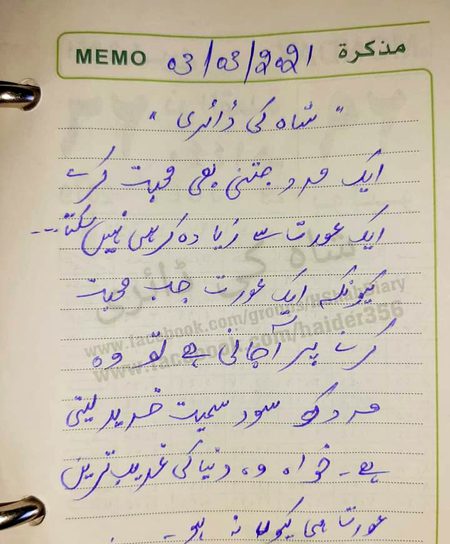 MEMO 03/03/2021 مذكرة
"شاہ کی ڈائری"
ایک مرد جتنی بھی محبت کرے
ایک عورت سے زیادہ کر ہی نہیں سکتا...
کیونکہ ایک عورت جب محبت
شاہ کی ڈائری
www.facebook.com/groups/mevublunary
کرنے پر آجاتی ہے تو وہ
www.facebook.com/haider356
مرد کو سود سمیت خرید لیتی
ہے۔ خواہ وہ دنیا کی غریب ترین
عورت ہی کیوں نہ ہو۔